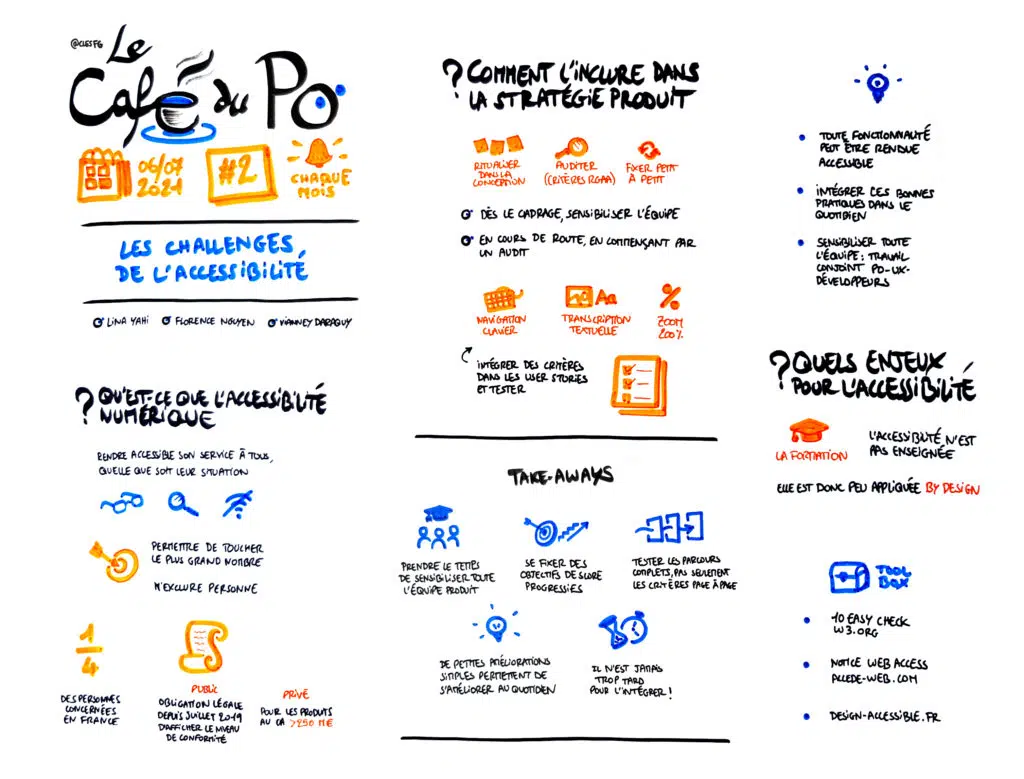 @CLESFG
Le
Café du PO
06/07
2021
#2
CHAQUE
MOIS
LES CHALLENGES
DE L'ACCESSIBILITÉ
LINA YAHI
FLORENCE NGUYEN
VIANNEY DARAGUY
? QU'EST-CE QUE L'ACCESSIBILITÉ
NUMÉRIQUE
RENDRE ACCESSIBLE SON SERVICE À TOUS,
QUELLE QUE SOIT LEUR SITUATION
PERMETTRE DE TOUCHER
LE PLUS GRAND NOMBRE
N'EXCLURE PERSONNE
1
4
DES PERSONNES
CONCERNÉES
EN FRANCE
PUBLIC
OBLIGATION LÉGALE
DEPUIS JUILLET 2019
D'AFFICHER LE NIVEAU
DE CONFORMITÉ
PRIVÉ
POUR LES PRODUITS
AU CA >250 M€
? COMMENT L'INCLURE DANS
LA STRATÉGIE PRODUIT
RITUALISER
DANS LA
CONCEPTION
AUDITER
(CRITÈRES RGAA)
FIXER PETIT
À PETIT
DÈS LE CADRAGE, SENSIBILISER L'ÉQUIPE
EN COURS DE ROUTE, EN COMMENÇANT PAR
UN AUDIT
NAVIGATION
CLAVIER
Aa
TRANSCRIPTION
TEXTUELLE
%
ZOOM
200%
INTÉGRER DES CRITÈRES
DANS LES USER STORIES
ET TESTER
TAKE-AWAYS
PRENDRE LE TEMPS
DE SENSIBILISER TOUTE
L'ÉQUIPE PRODUIT
SE FIXER DES
OBJECTIFS DE SCORE
PROGRESSIFS
TESTER LES PARCOURS
COMPLETS, PAS SEULEMENT
LES CRITÈRES PAGE À PAGE
DE PETITES AMÉLIORATIONS
SIMPLES PERMETTENT DE
S'AMÉLIORER AU QUOTIDIEN
IL N'EST JAMAIS
TROP TARD
POUR L'INTÉGRER !
TOUTE FONCTIONNALITÉ
PEUT ÊTRE RENDUE
ACCESSIBLE
INTÉGRER CES BONNES
PRATIQUES DANS LE
QUOTIDIEN
SENSIBILISER TOUTE
L'ÉQUIPE : TRAVAIL
CONJOINT PO-UX-
DÉVELOPPEURS
? QUELS ENJEUX
POUR L'ACCESSIBILITÉ
LA FORMATION
L'ACCESSIBILITÉ N'EST
PAS ENSEIGNÉE
ELLE EST DONC PEU APPLIQUÉE BY DESIGN
TOOL
BOX
10 EASY CHECK
W3.ORG
NOTICE WEB ACCESS
ACCEDE-WEB.COM
DESIGN-ACCESSIBLE.FR